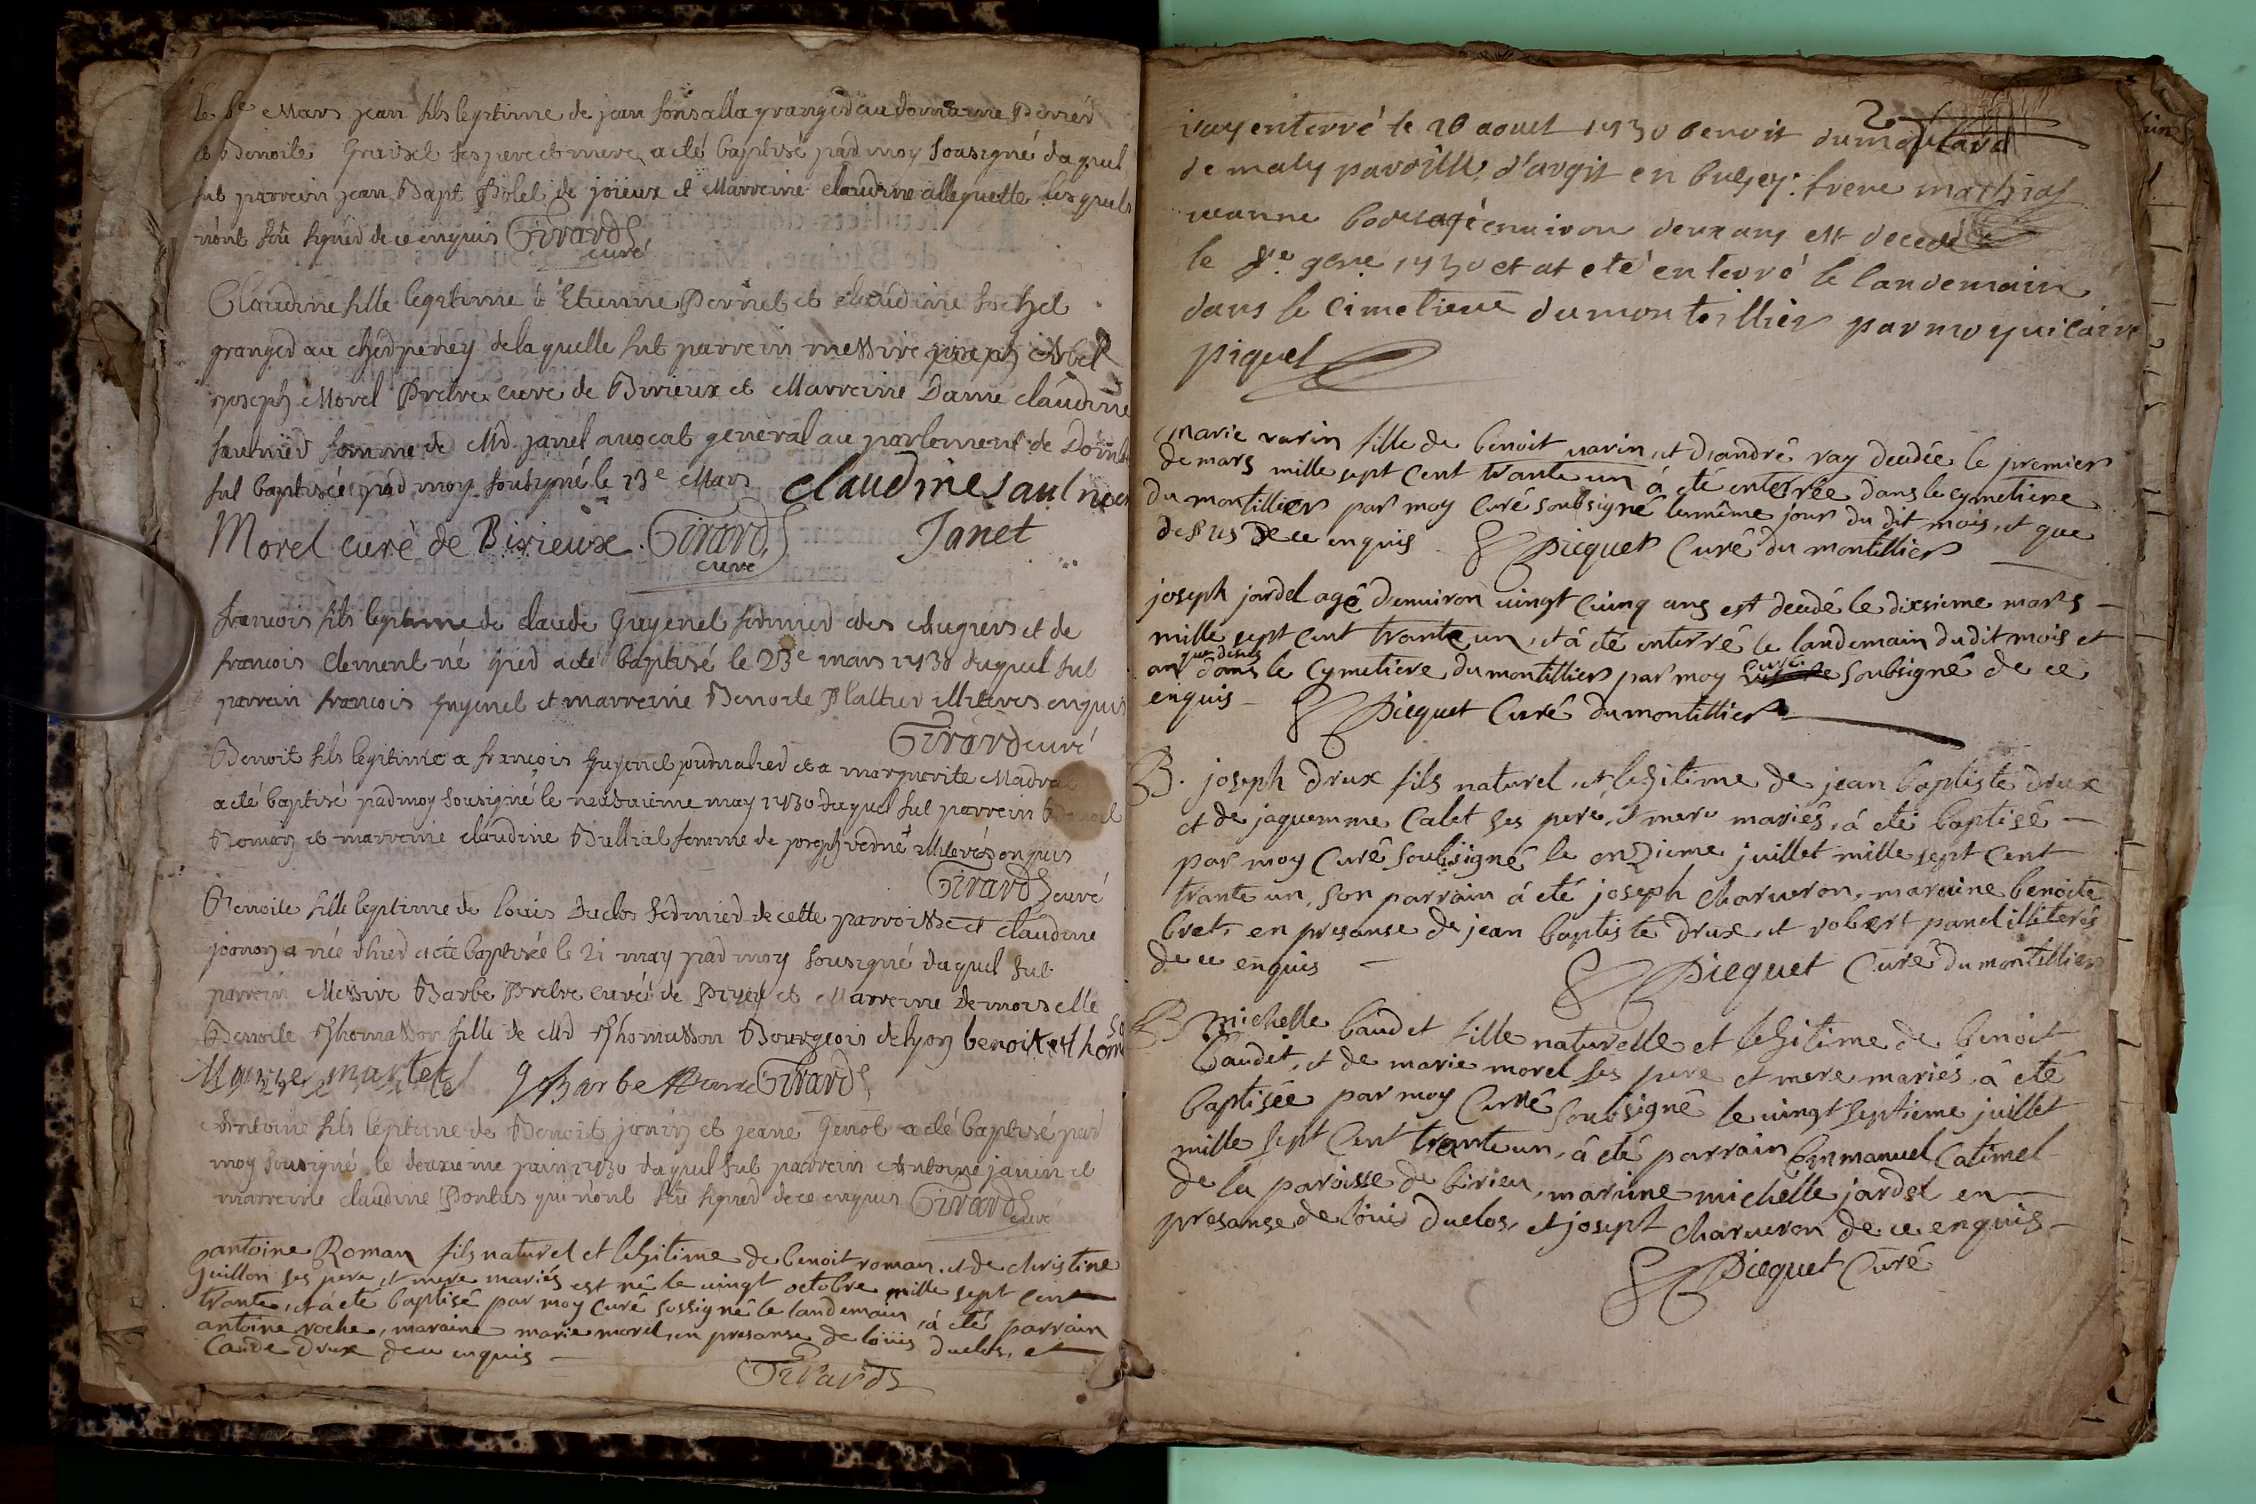 le 6e Mars jean fils legitime de jean fonsalla granger au domaine Perrier
et benoite ses pere et mere a eté baptisé par moy sousigné duquel
fut parrein jean Bapt Polet de joieux et Marreine claudine allequette lesquels
n'ont sceu signer de ce enquis Girard
curé
Claudine fille legitime d'Etienne Pernet et claudine
granger au cher peney de laquelle fut parrein messire joseph
joseph Morel Prebre curé de Birieux et Marreine Dame claudine
saunier femme de Mr janet avocat general au parlement de Dombes
fut baptisée par moy sousigné le 13e Mars claudine saulnier
Morel curé de Birieux Girard Janet
curé
francois fils legitime de claude Guyenet fermier des Augiers et de
francois Clement né hier a eté baptisé le 23e mars 1730 duquel fut
parrein francois guyenet et marreine Benoite Plattier illiterés enquis
Girard curé
Benoit fils legitime a francois guyenet journalier et a marguerite
a eté baptisé par moy sousigné le may 1730 duquel fut parrein
Romain et marreine claudine Bullial femme de joseph verne illiterés enquis
Girard curé
Benoite fille legitime de louis Duclos fermier de cette parroisse et claudine
jannon née d'hier a eté baptisée le 21 may par moy sousigné duquel fut
parrein Messire Barbe Prebre curé de et Marreine Demoiselle
Benoite Thomasson fille de Mr Thomasson Bourgeois de lyon benoite thom
Barbe Girard
Antoine fils legitime de Benoit janin et jeane Genot a eté baptisé par
moy sousigné le deuxieme juin 1730 duquel fut parrein Antoine janin et
marreine claudine Pontus qui n'ont sceu signer de ce enquis Girard
curé
antoine Roman fils naturel et lehitime de benoit roman, et de christine
guillon ses pere et mere mariés est né le vingt octobre mille sept cent
trante, et a eté baptisé par moy curé sossigné le landemain, á eté parrain
antoine roche, maraine marie morel, en presanse de loüis duclos, et
Caude drux de ce enquis
Girard
2
jay enterré le 20 aout 1730 benoit
de maly paroisse d'argit en bugey: frere mathias
jeanne agé environ deux ans est decedé
le 8e 1730 et at eté enterré le landemain
dans le cimetiere du montillier par moy vicaire
piquet
marie varin fille de benoit varin, et d'andrè ray decdée le premier
de mars mille sept cent trante un á eté enterrée dans le cymetiere
du montillier par moy curé soubsigné le même jour du dit mois, et que
desus de ce enquis Picquet Curé du montillier
joseph jardel agé d'environ vingt cinq ans est decdé le dixsieme mars
mille sept cent trante un, et á eté enterré le landemain du dit mois et
an que desus dans le Cymetiere du montillier par moy curé soubsigné de ce
enquis Picquet Curé du montillier
B. joseph drux fils naturel, et lehitime de jean baptiste drux
et de jaquemme Calet ses pere, et mere mariés, á eté baptisé
par moy Curé soubsigné le onzieme juillet mille sept cent
trante un, son parrain á eté joseph charveron, maraine benoite
bret, en presanse de jean baptiste drux, et robert panel illiterés
de ce enquis Picquet Curé du montillier
B michelle baudet fille naturelle et lehitime de benoit
baudet, et de marie morel ses pere et mere mariés, á eté
baptisée par moy Curré soubsigné le vingt septieme juillet
mille sept cent trante un, á eté parrain Emmanuel Catimel
de la paroisse de birieu, maraine michelle jardel en
presanse de loüis duclos, et josept charveron de ce enquis
Picquet Curé